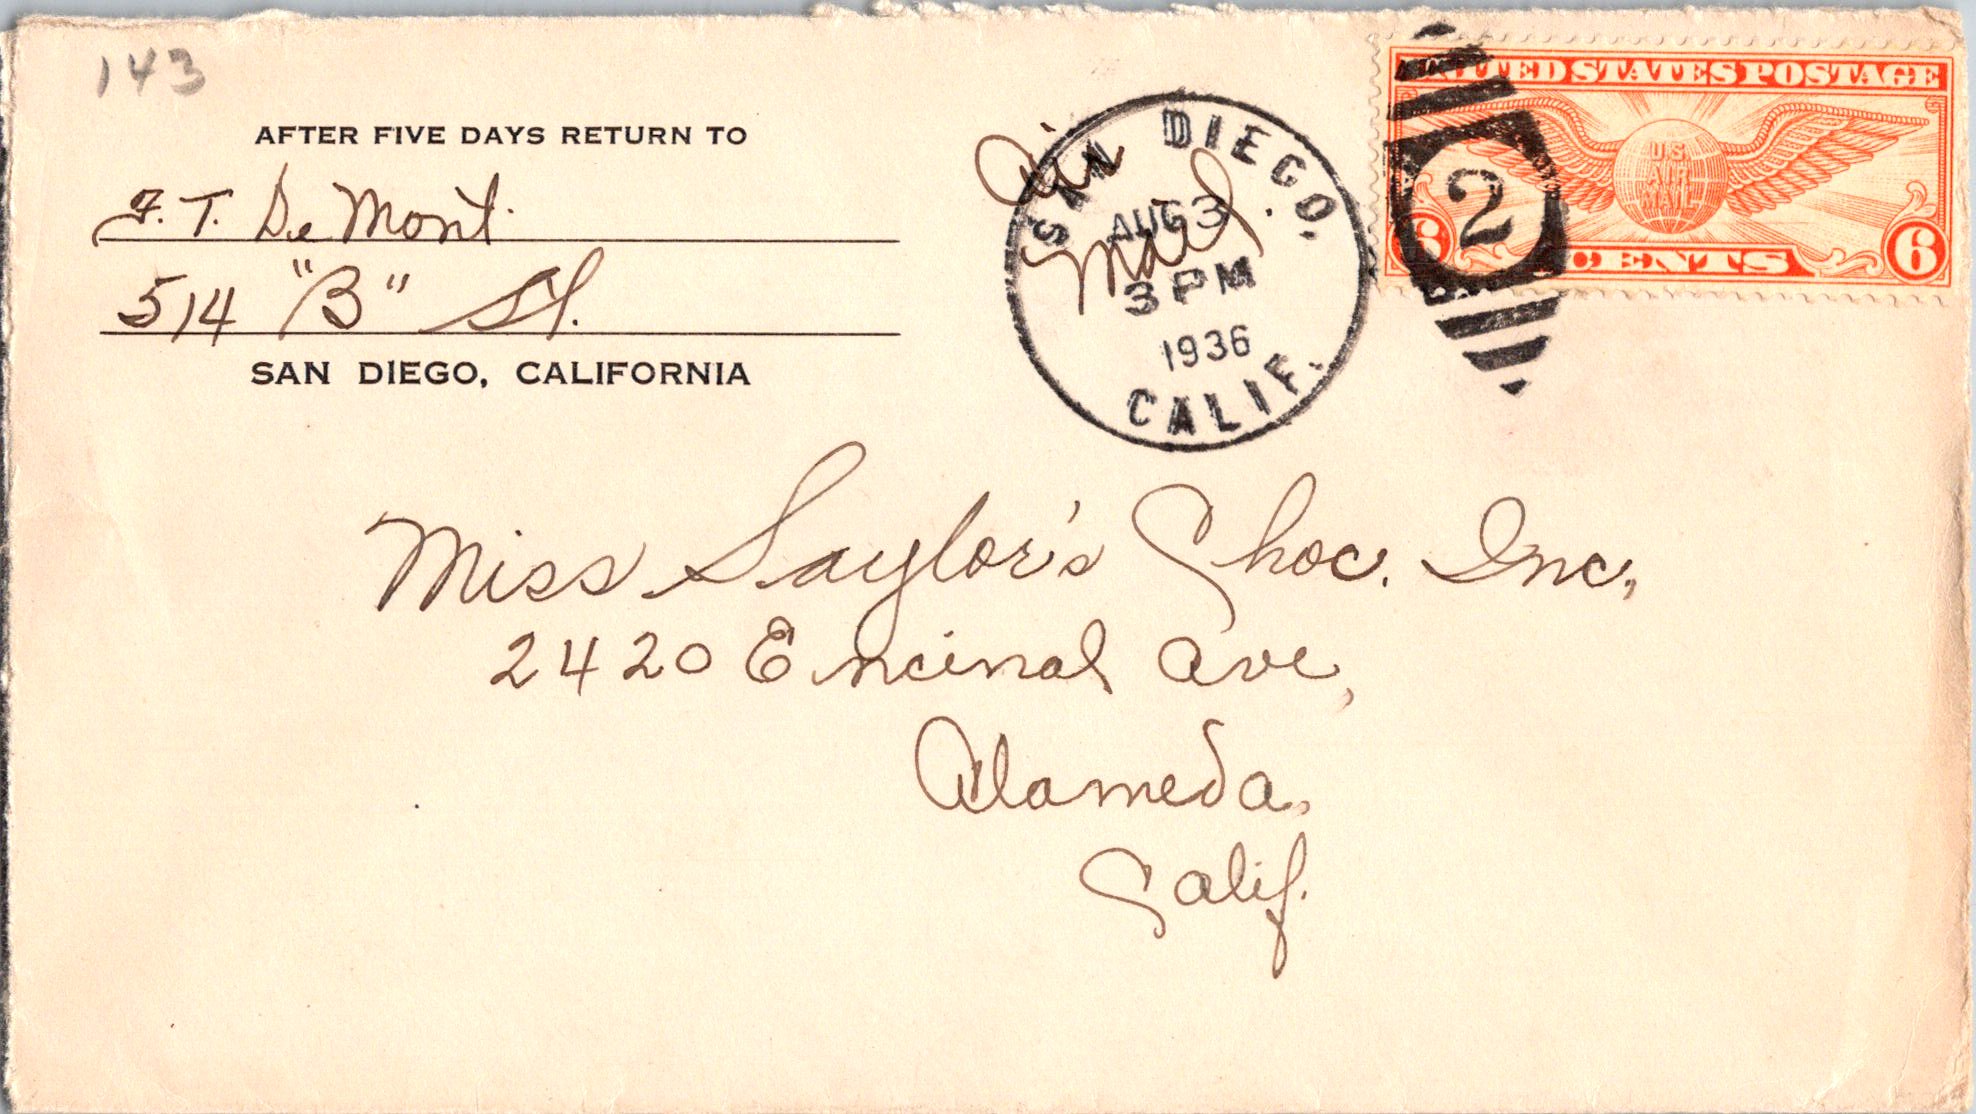 143
AFTER FIVE DAYS RETURN TO
F. T. De Mont.
514 "B" St.
SAN DIEGO, CALIFORNIA
Air
Mail.
SAN DIEGO,
AUG 3
3 PM
1936
CALIF.
2
UNITED STATES POSTAGE
U.S.
AIR
MAIL
6 CENTS 6
Miss Saylor's Choc. Inc,
2420 Encinal Ave,
Alameda,
Calif.